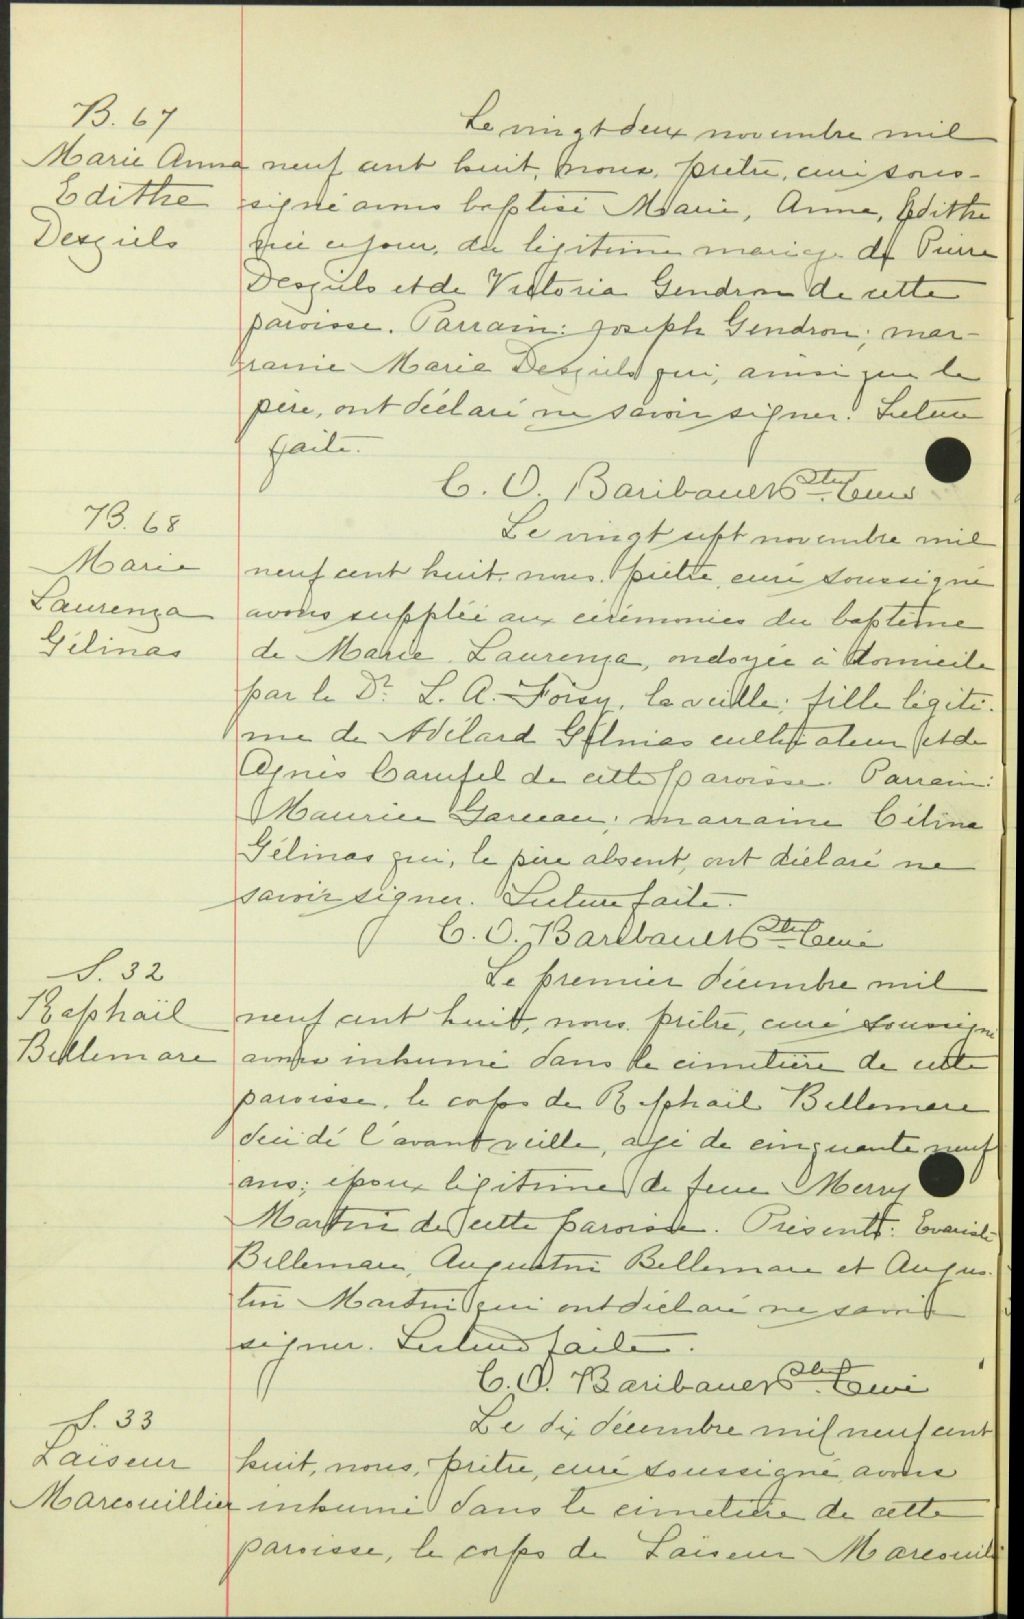 B. 67
Marie Anna
Edithe
Desziels
Le vingt deux novembre mil
neuf cent huit, nous, prêtre, curé sous-
signé avons baptisé Marie, Anna, Edithe
née ce jour, du légitime mariage de Pierre
Desziels et de Victoria Gendron de cette
paroisse. Parrain: Joseph Gendron; mar-
raine Marie Desziels qui, ainsi que le
père, ont déclaré ne savoir signer. Lecture
faite.
C. O. Baribault Ptre Curé
B. 68
Marie
Laurenza
Gélinas
Le vingt sept novembre mil
neuf cent huit, nous, prêtre, curé soussigné
avons suppléé aux cérémonies du baptême
de Marie Laurenza, ondoyée à domicile
par le Dr. L. A. Foisy, la veille; fille légiti-
me de Adélard Gélinas cultivateur et de
Agnès Carufel de cette paroisse. Parrain:
Maurice Garceau; marraine Célina
Gélinas qui, le père absent, ont déclaré ne
savoir signer. Lecture faite.
C. O. Baribault Ptre Curé
S. 32
Raphaël
Bellemare
Le premier décembre mil
neuf cent huit, nous, prêtre, curé soussigné
avons inhumé dans le cimetière de cette
paroisse, le corps de Raphaël Bellemare
décédé l'avant veille, agé de cinquante neuf
ans; époux légitime de feue Merry
Martin de cette paroisse. Présents: Evariste
Bellemare, Augustin Bellemare et Augus-
tin Martin qui ont déclaré ne savoir
signer. Lecture faite.
C. O. Baribault Ptre Curé
S. 33
Laïseur
Marcouillier
Le dix décembre mil neuf cent
huit, nous, prêtre, curé soussigné avons
inhumé dans le cimetière de cette
paroisse, le corps de Laïseur Marcouil-